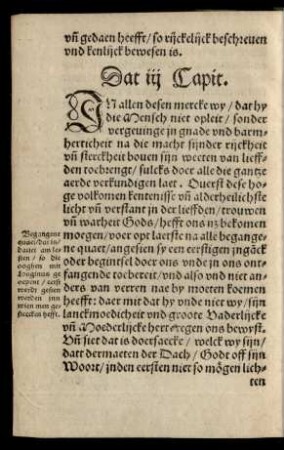 vn̄ gedaen heefft / so rijckelijck beschreuen
vnd kenlijck bewesen is.
Dat iij Capit.
IN allen desen mercke wy / dat hy
die Mensch niet opleit / sonder
vergeuinge jn gnade vnd barm-
herticheit na die macht sijnder rijckheit
vn̄ sterckheit bouen sijn weeten van lieff-
den toebrengt / sulcks doer alle die gantze
aerde verkundigen laet. Ouerst dese ho-
ge volkomen kentenisse vn̄ alderheilichste
licht vn̄ verstant jn der lieffden / trouwen
vn̄ warheit Gods / hefft ons nz bekomen
mogen / voer opt laetste na alle begange-
ne quaet / angesien sy een eerstigen jngāck
oder begintsel doer ons vnde jn ons ont-
fangende toebereit / vnd also vnd niet an-
ders van verren nae by moeten koemen
heefft: daer mit dat hy vnde niet wy / sijn
lanckmoedicheit vnd groote Vaderlijcke
vn̄ Moederlijcke hert tegen ons bewyst.
Vn̄ siet dat is doersaecke / welck wy sijn /
datt dermaeten der Dach / Godt off sijn
Woort / jnden eersten niet so mögen lich-
ten
Begangene
quaet / dat in-
daeier
sien / so die
ooghen
geopent / eerst
wordt gesien
worden jnn
wien men ge-
steecken hefft.